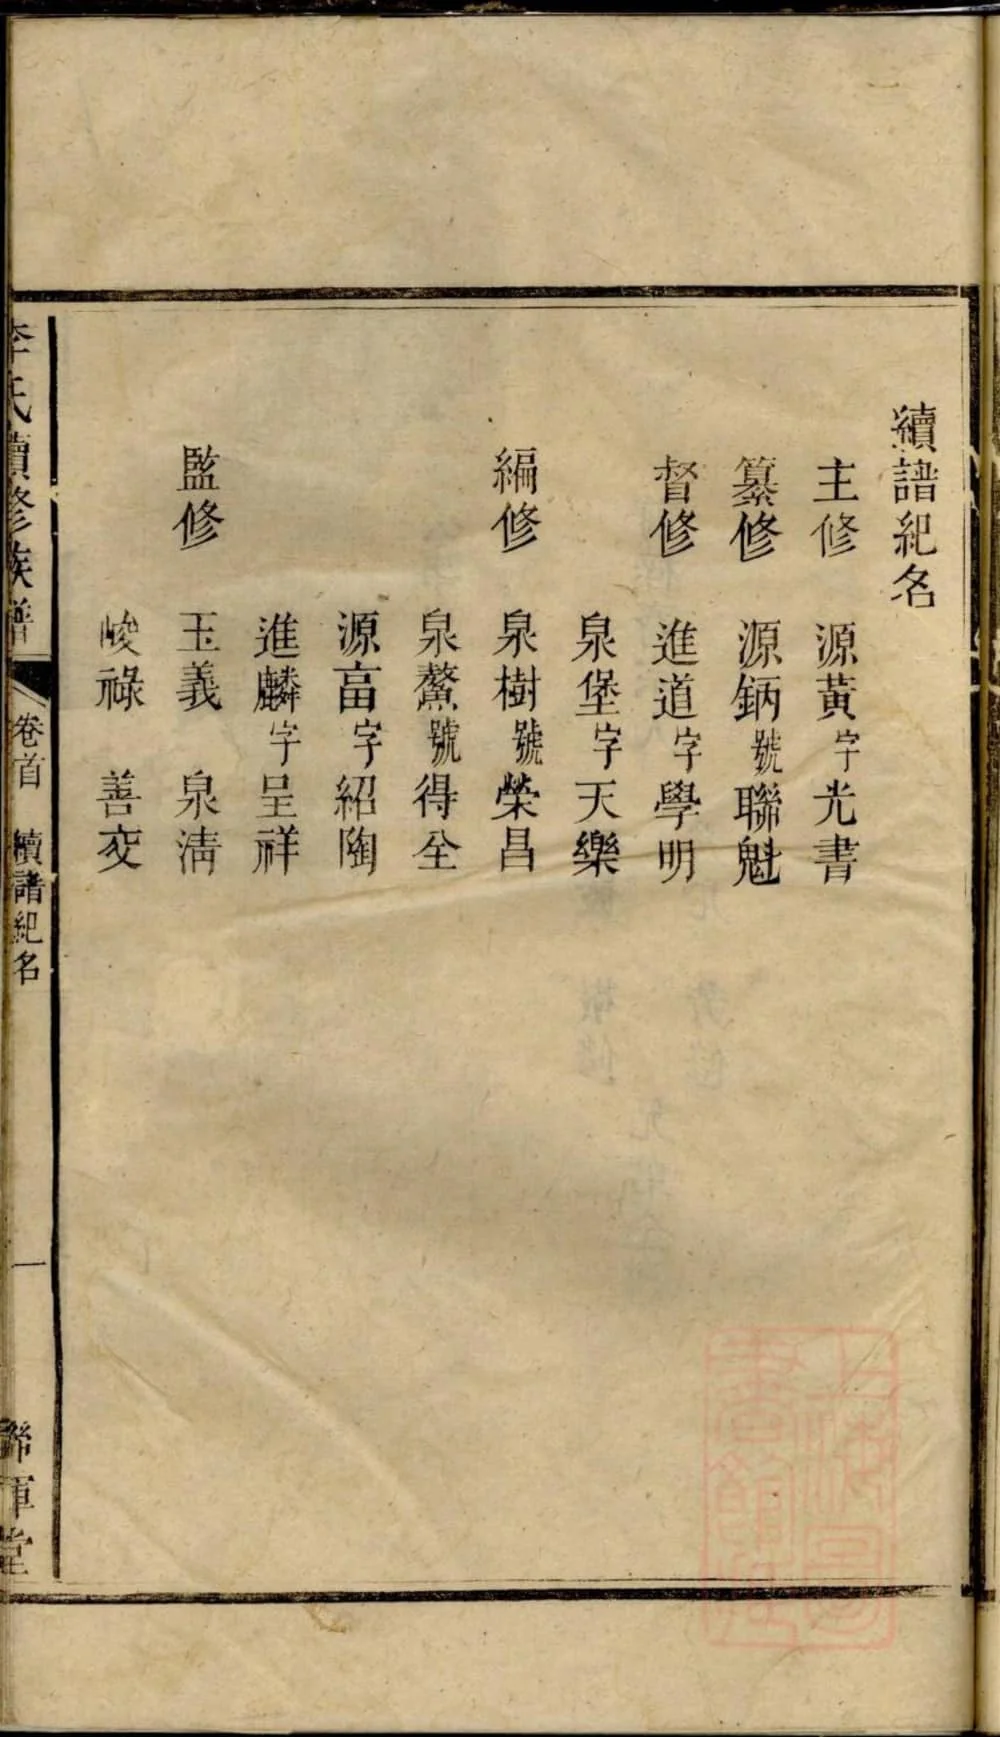 續譜紀名
主修 源黃字光書
纂修 源鈵號聯魁
督修 進道字學明
泉堡字天樂
編修 泉樹號榮昌
泉鰲號得全
源畐字紹陶
進麟字呈祥
監修 玉義 泉清
峻祿 善交
李氏續修族譜 卷首 續譜紀名 一 聯軍堂
上海圖書館藏